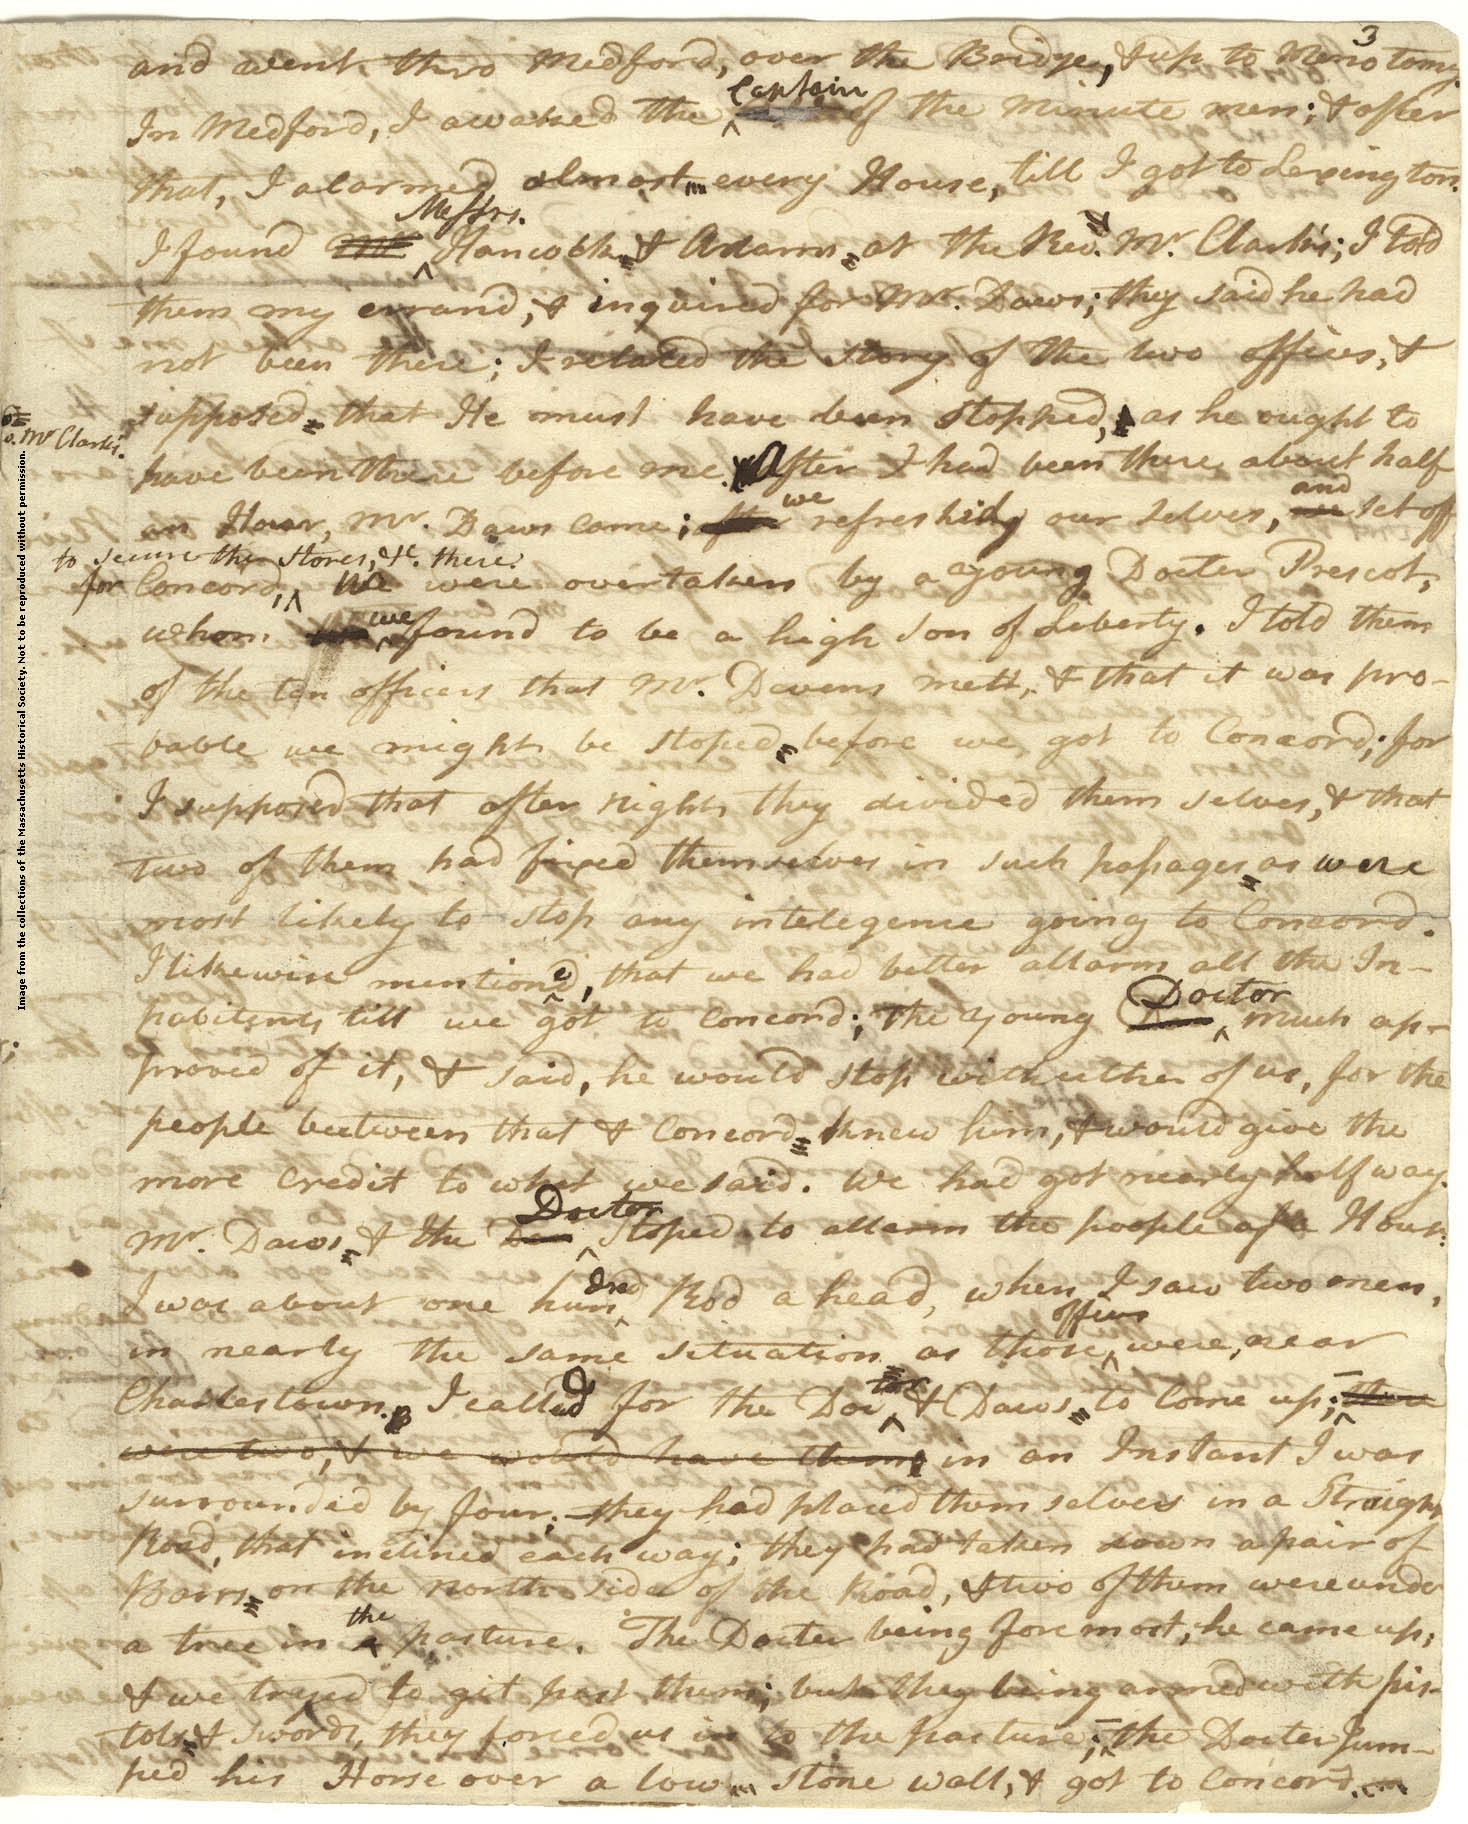 3
and went thro Medford, over the Bridge, & up to Menotomy.
Captain
In Medford, I awaked the of the Minute men; & after
that, I alarmed almost every House, till I got to Lexington.
Messrs.
I found Mr. Hancock & Adams at the Rev. Mr. Clark's; I told
them my errand, & inquired for Mr. Daws; they said he had
not been there; I related the story of the two officers, &
supposed that He must have been stopped, as he ought to
Mr Clark's.
have been there before me. After I had been there about half
we and
an Hour, Mr. Daws came; refreshid our selves, set off
to secure the Stores, &c. there.
for Concord, We were overtaken by a young Docter Prescot,
we
whom found to be a high Son of Liberty. I told them
of the ten officers that Mr. Devens mett, & that it was pro-
bable we might be stoped before we got to Concord; for
I supposed that after Night, they divided them selves, & that
two of them had fixed themselves in such passages as were
most likely to stop any intelegence going to Concord.
I likewise mentioned, that we had better allarm all the In-
Doctor
habitents till we got to Concord; the young much ap-
proved of it, & said, he would stop with either of us, for the
people between that & Concord knew him, & would give the
more credit to what we said. We had got nearly half way.
Doctor
Mr. Daws & the Stoped to allarm the people of a House:
dred
I was about one hun Rod a head, when I saw two men,
officers
in nearly the same situation as those, were, near
Charlestown. I called for the Doctor & Daws to come up; there
were two, & we would have them in an Instant I was
surrounded by four; they had placed them selves in a Straight
Road, that inclined each way; they had taken down a pair of
Barrs on the North side of the Road, & two of them were under
the
a tree in pasture. The Docter being foremost, he came up;
& we tryed to git past them; but they being armed with pis-
tols & swords, they forced us in to the pasture; the Docter Jum-
ped his Horse over a low stone wall, & got to Concord.
Image from the collections of the Massachusetts Historical Society. Not to be reproduced without permission.